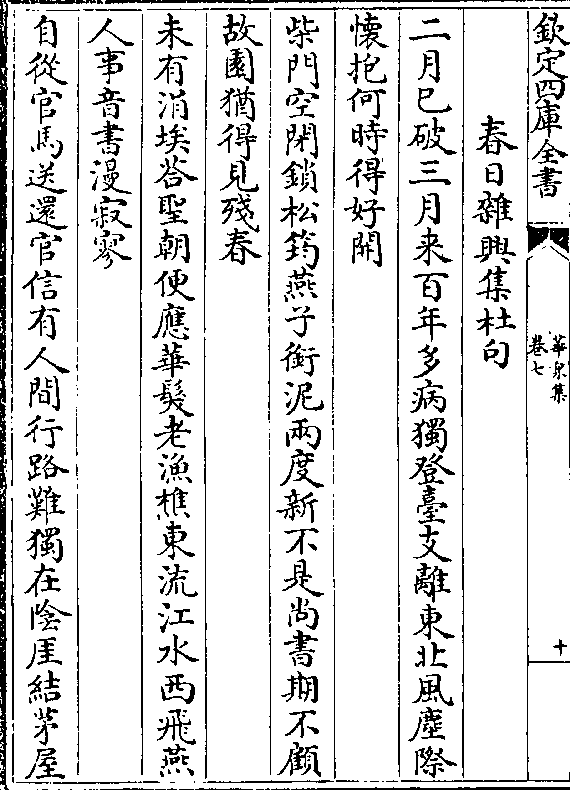 欽定四庫全書
華泉集
卷七
十
春日雜興集杜句
二月已破三月来百年多病獨登臺支離東北風塵際
懷抱何時得好開
柴門空閉鎖松筠燕子銜泥兩度新不是尚書期不顧
故園猶得見殘春
未有涓埃荅聖朝便應華髮老漁樵東流江水西飛燕
人事音書漫寂寥
自從官馬送還官信有人間行路難獨在陰厓結茅屋